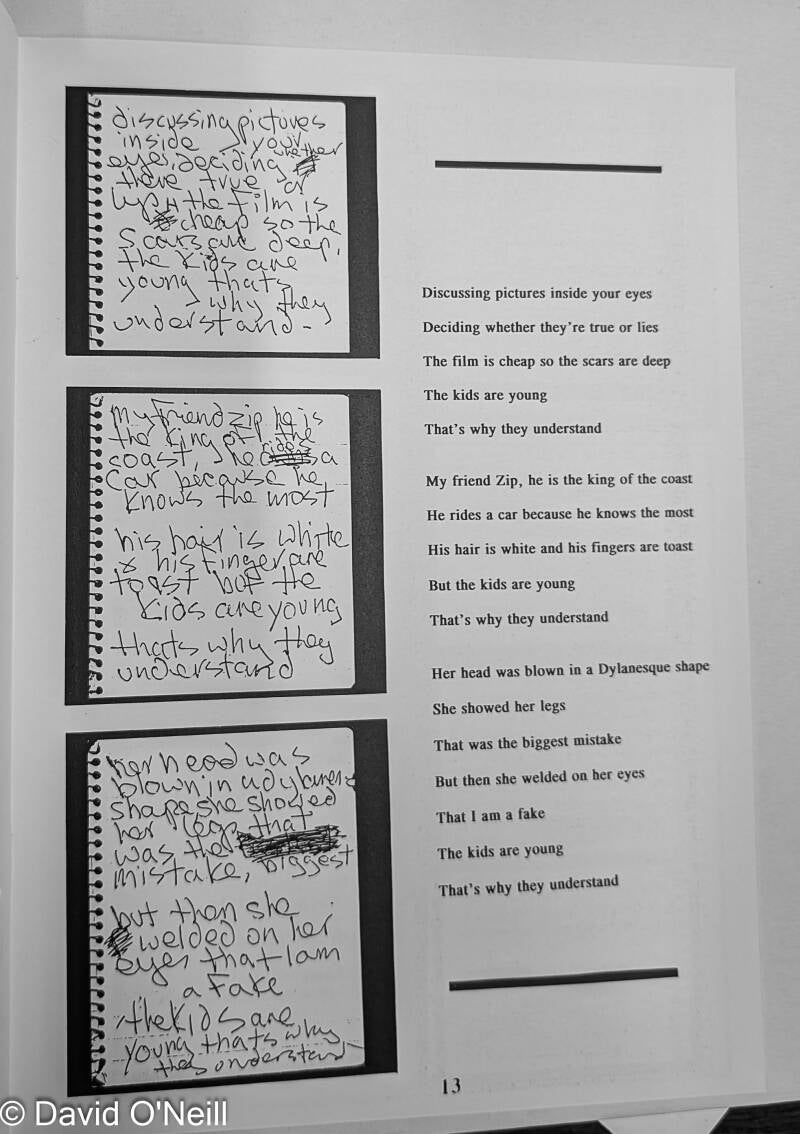 discussing pictures
inside your
eyes, deciding whether
there true or
lys the film is
cheap so the
scars are deep,
the kids are
young thats
why they
understand -
My friend zip he is
the king of the
coast, he rides a
car because he
knows the most
his hair is white
& his finger are
toast but the
kids are young
thats why they
understand
her head was
blown in a dylanes
shape she showed
her legs that
was the
mistake, biggest
but then she
welded on her
eyes that I am
a fake
the kids are
young thats why
they understand
Discussing pictures inside your eyes
Deciding whether they're true or lies
The film is cheap so the scars are deep
The kids are young
That's why they understand
My friend Zip, he is the king of the coast
He rides a car because he knows the most
His hair is white and his fingers are toast
But the kids are young
That's why they understand
Her head was blown in a Dylanesque shape
She showed her legs
That was the biggest mistake
But then she welded on her eyes
That I am a fake
The kids are young
That's why they understand
13
© David O'Neill